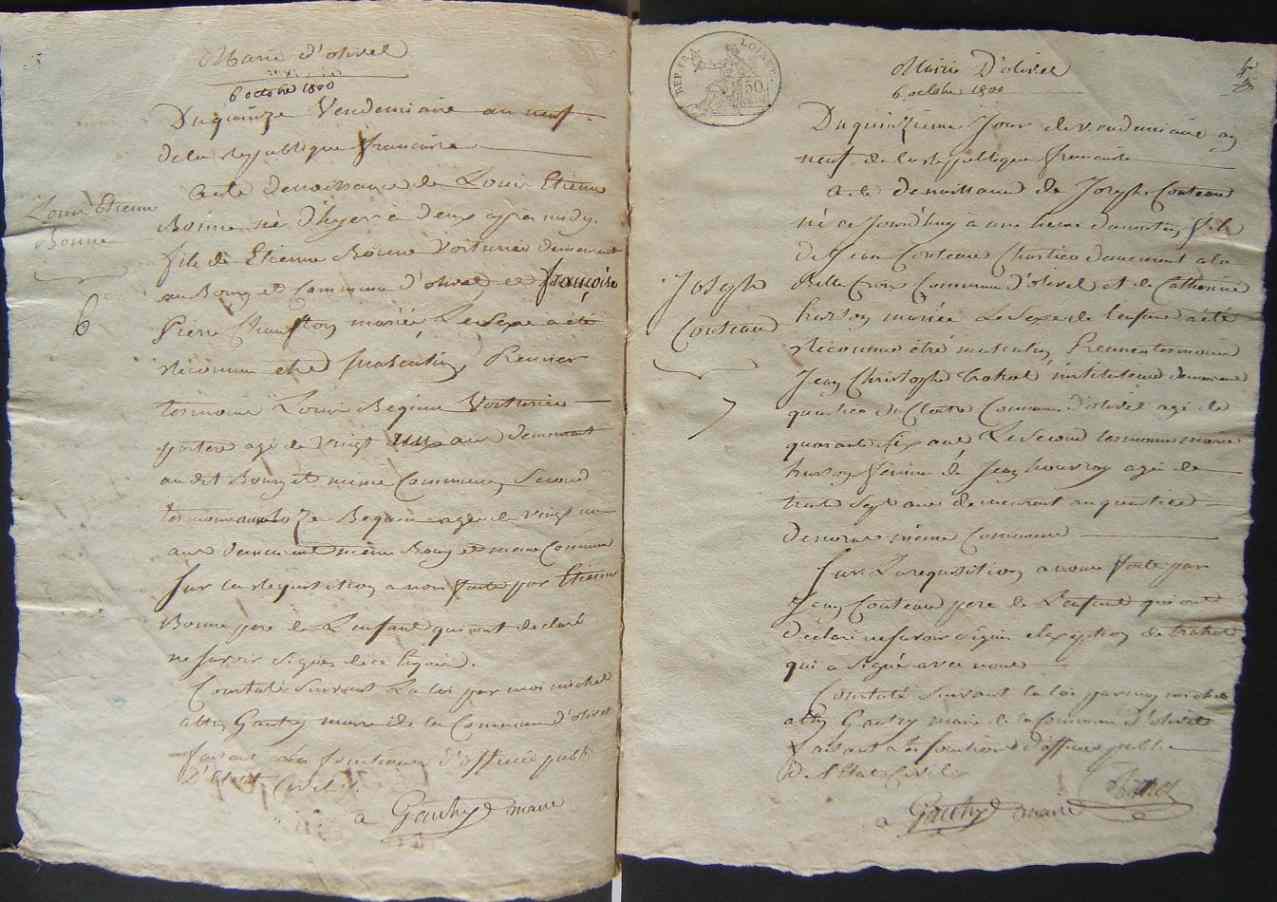 Mairie d'olivet
6 octobre 1800
Du quinze Vendemiaire an neuf
de la Republique francaise
Acte de naissance de Louis Etienne
Bonne né d'hyer à deux
fils de Etienne Bonne Voiturier demeurant
au Bourg et Commune d'olivet et françoise
Pierre mariés Le Sexe a été
reconnu etre masculin, Premier
temoin Louis Begum Voiturier
agé de vingt ans demeurant
au dit Bourg et meme Commune, Second
temoin agé de vingt
ans demeurant meme Bourg et meme Commune
sur la requisition a nous faite par Etienne
Bonne pere de L'enfant qui ont declaré
ne savoir signer
Constaté Suivant La loi par moi michel
Gautry maire de la Commune d'olivet
faisant Les fonctions d'officier public
D'Etat Civil
Gautry maire
Louis Etienne
Bonne
6
REP. FRA.
50
Mairie D'olivet
6 octobre 1800
Du quinzieme Jour de vendemiaire an
neuf de la Republique francaise
Acte de naissance de Joseph Couteau
né ce Jourd'huy a une heure du matin, fils
de Jean Couteau demeurant a la
Belle Croix Commune d'olivet et de Catherine
hurson mariés Le Sexe de l'enfant a été
reconnu etre masculin, Premier temoin
Jean Christophe instituteur demeurant
quartier du Cloitre Commune d'olivet agé de
quarante six ans Le Second temoin marie
hurson femme de Jean agé de
trente sept ans demeurant au quartier
meme Commune
Sur La requisition a nous faite par
Jean Couteau pere de L'enfant qui ont
declaré ne savoir signer a l'exception de
qui a signé avec nous
Constaté Suivant la loi par moy michel
Gautry maire de la Commune d'olivet
faisant Les fonctions d'officier public
De l'Etat Civil
Gautry maire
Joseph
Couteau
7